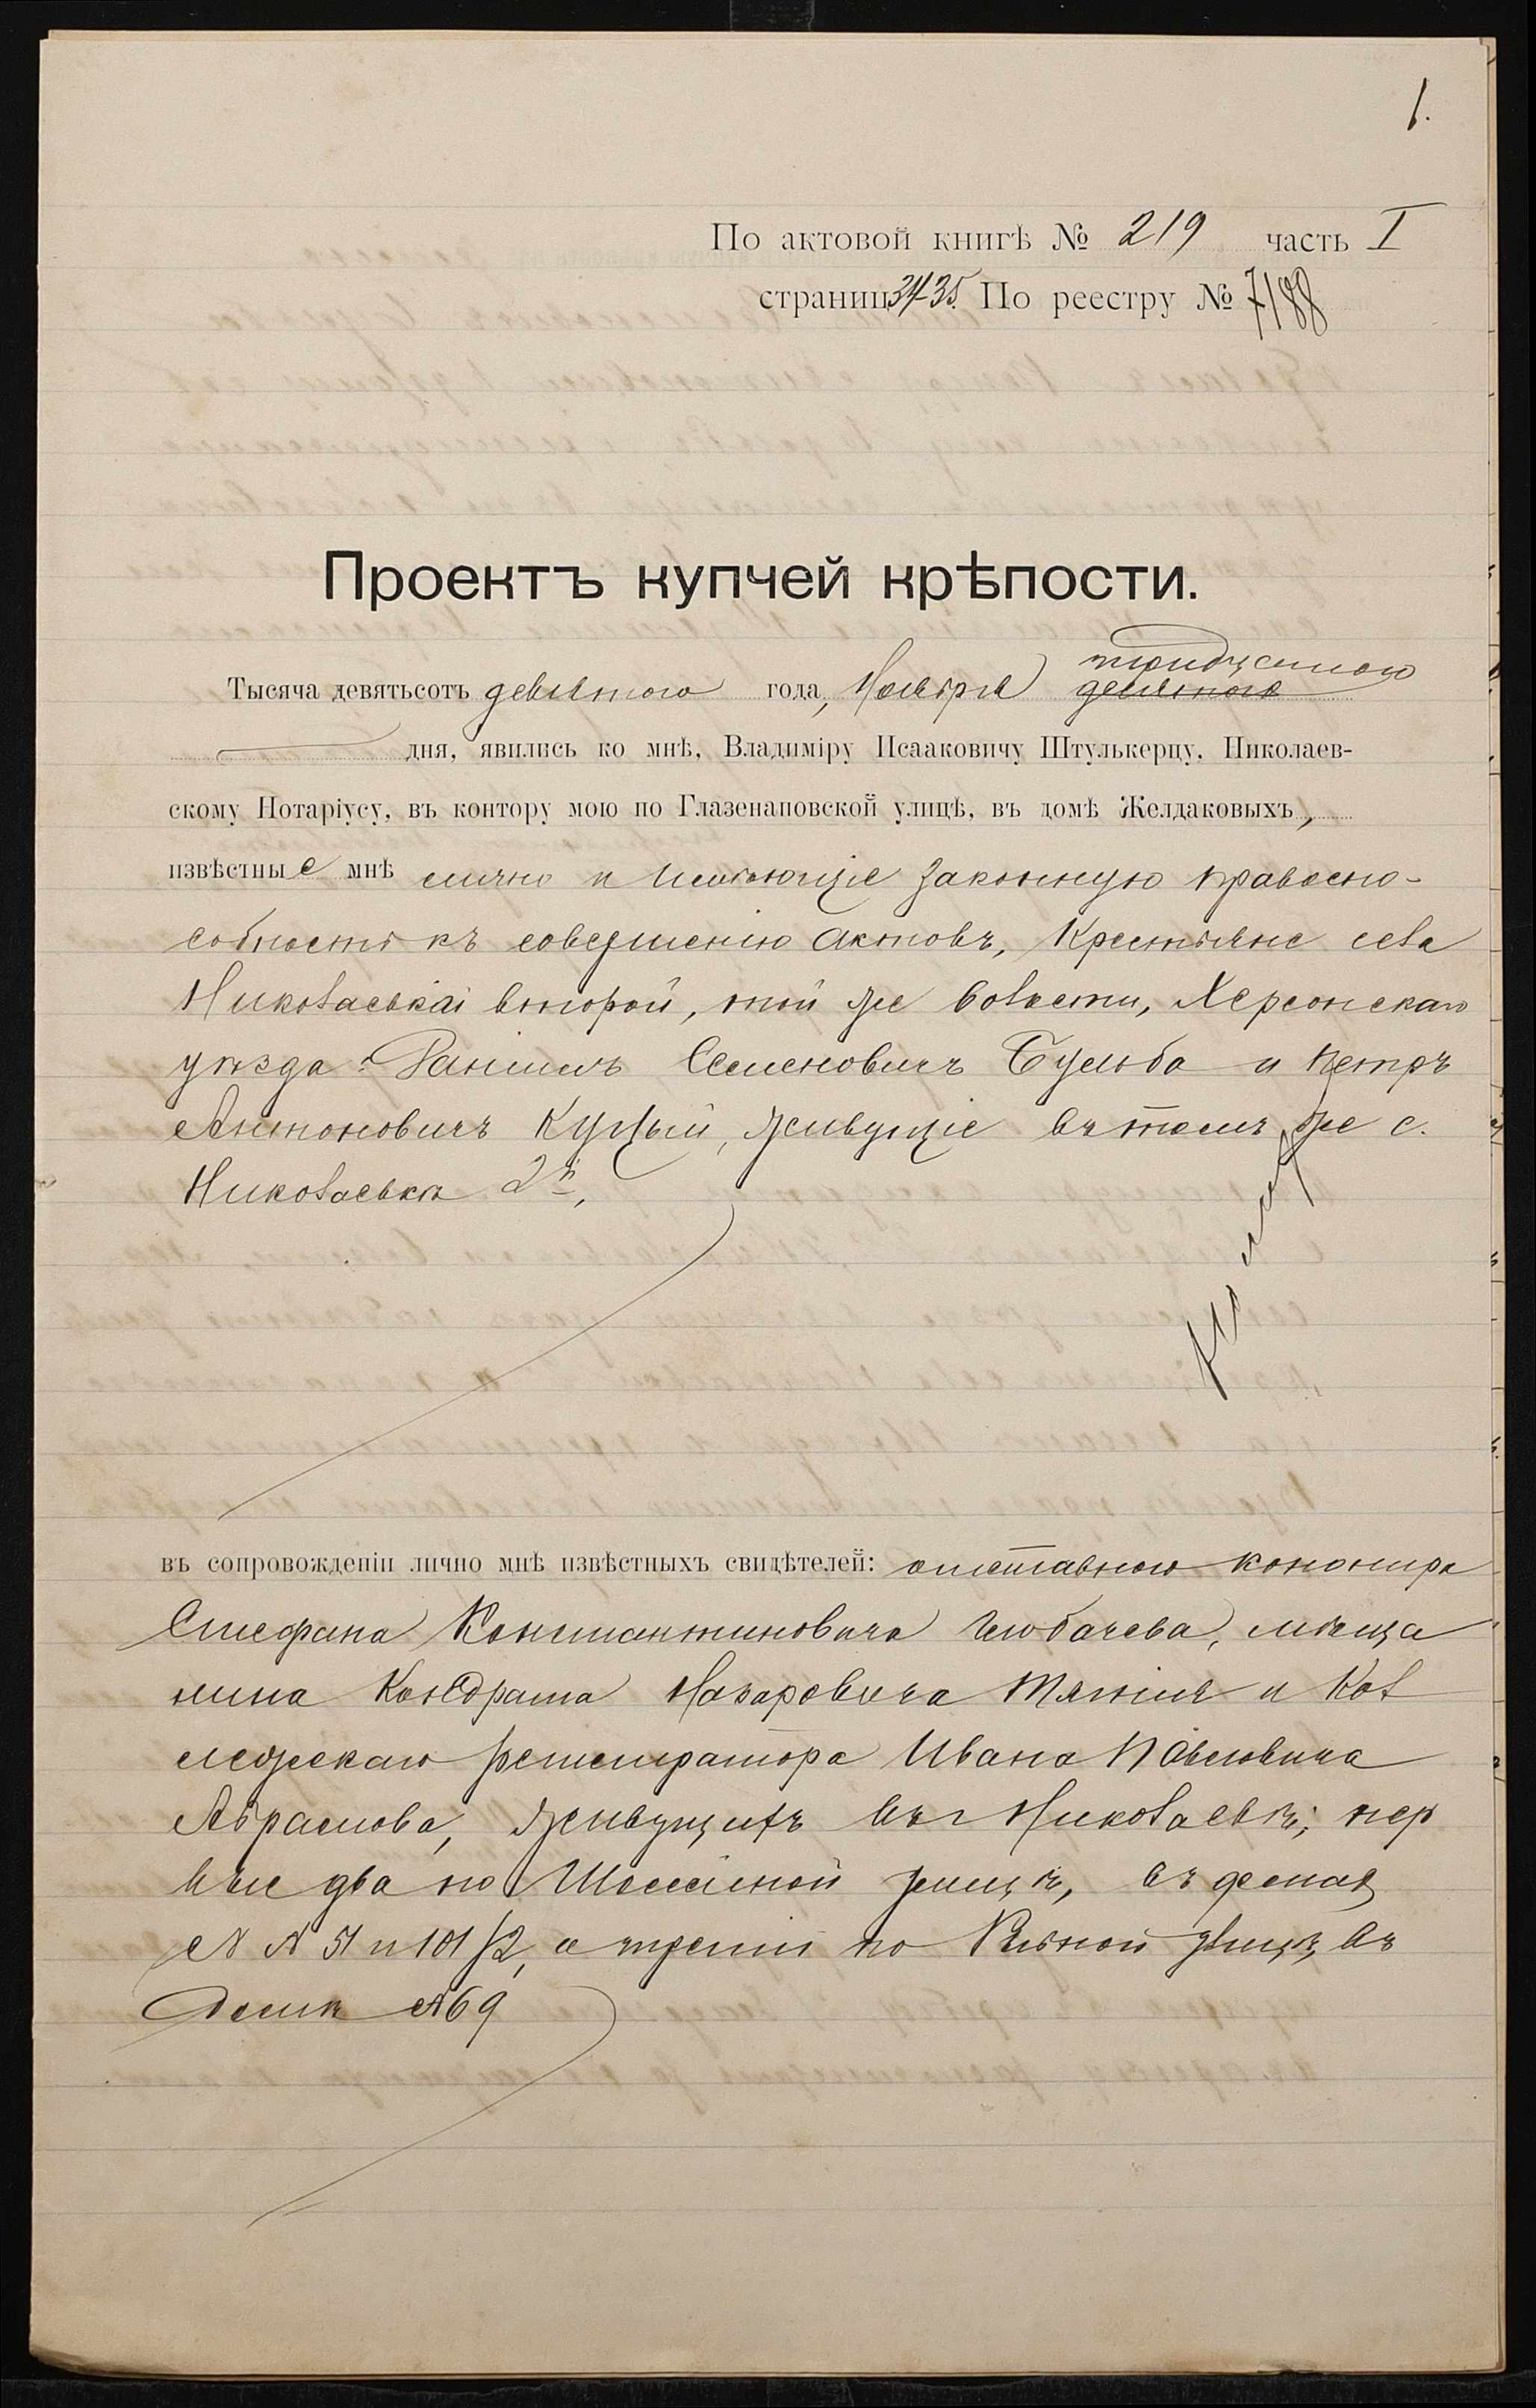 1.
По актовой книгѣ № 219 часть I
страниц 34-35. По реестру № 7188
Проектъ купчей крѣпости.
тридцатого
Тысяча девятьсотъ девятого года, Ноября девятого
дня, явились ко мнѣ, Владиміру Исааковичу Штулькерцу, Николаев-
скому Нотаріусу, въ контору мою по Глазенаповской улицѣ, въ домѣ Желдаковыхъ,
извѣстные мнѣ лично и имѣющіе законную правоспо-
собность къ совершенію актовъ, крестьяне села
Николаевки второй, той же волости, Херсонскаго
уѣзда: Даніилъ Семеновичъ Бульба и Петръ
Антоновичъ Куцый, живущіе въ томъ же с.
Николаевкѣ 2й,
въ сопровожденіи лично мнѣ извѣстныхъ свидѣтелей: отставного канонира
Стефана Константиновича мѣща
нина Кондрата Назаровича и Кол
лежскаго регистратора Ивана Павловича
Абрамова, живущихъ въ г Николаевѣ; пер
вые два по улицѣ, въ домах
№ № 51 и 101/2, а третій по улицѣ, въ
домѣ № 69